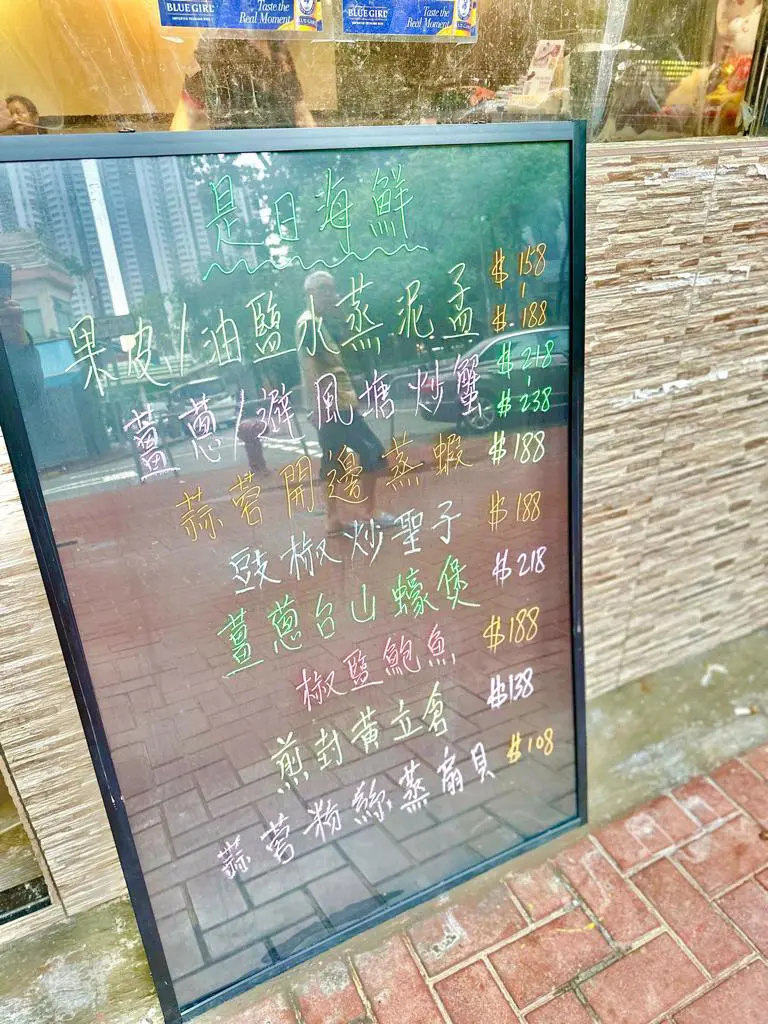 BLUE GIRL Taste the Real Moment
BLUE GIRL Taste the Real Moment
是日海鮮
果皮/油鹽水蒸泥孟 $158 - $188
薑蔥/避風塘炒蟹 $218 - $238
蒜蓉開邊蒸蝦 $188
豉椒炒聖子 $188
薑蔥台山蠔煲 $218
椒鹽鮑魚 $188
煎封黃立倉 $138
蒜蓉粉絲蒸扇貝 $108